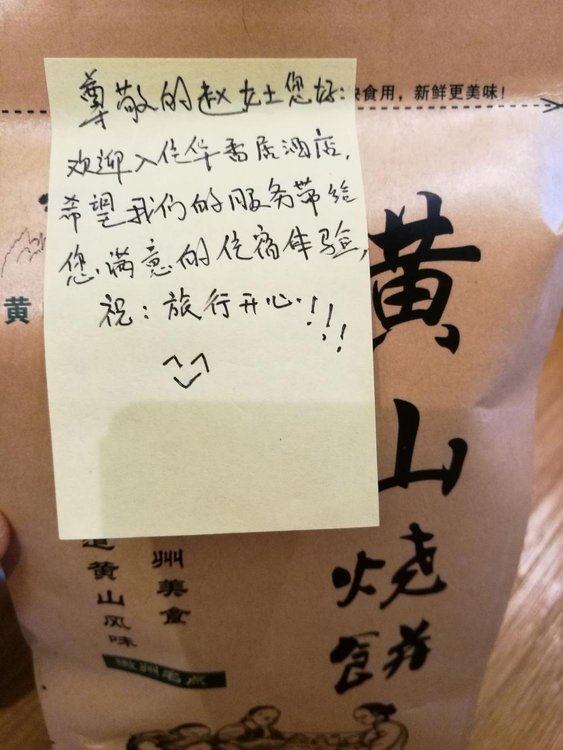 尊敬的赵女士您好:
欢迎入住华香居酒店,
希望我们的服务带给
您满意的住宿体验,
祝:旅行开心!!!
食用，新鲜更美味!
黄山烧饼
黄
州美食
道黄山风味
徽州名点